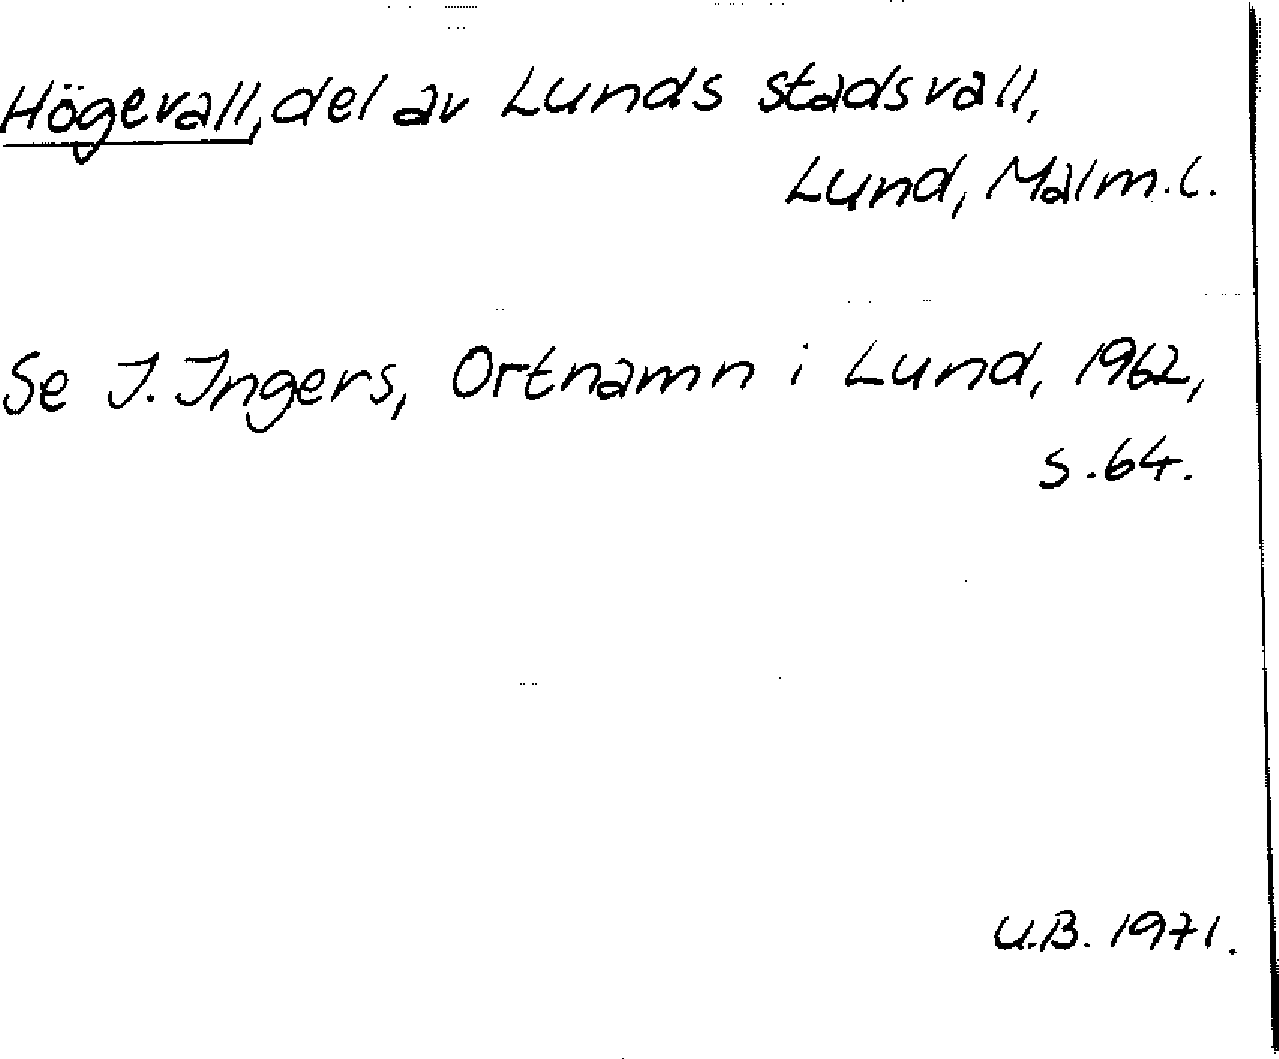 Högevall, del av Lunds stadsvall,
Lund, Malm.l.
Se I. Ingers, Ortnamn i Lund, 1962,
s.64.
U.B. 1971.